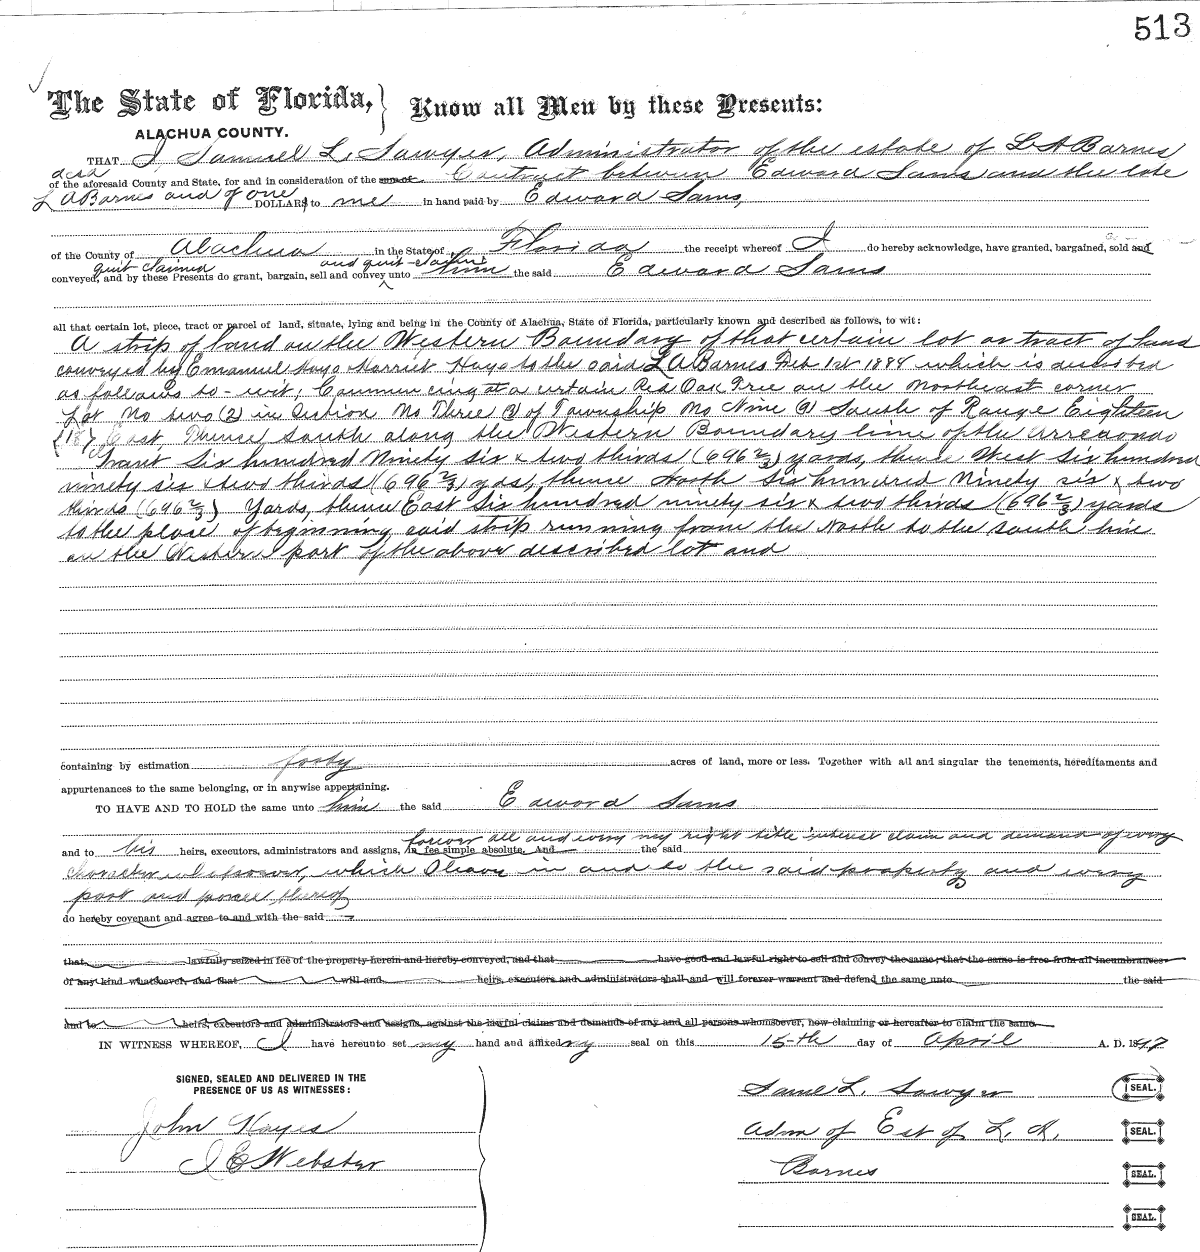 513
The State of Florida, } Know all Men by these Presents:
ALACHUA COUNTY.
THAT I Samuel L. Sawyer, Administrator of the estate of L A Barnes
decd
of the aforesaid County and State, for and in consideration of the sum of Contract between Edward Sams and the late
L A Barnes and of one DOLLARS to me in hand paid by Edward Sams,
of the County of Alachua in the State of Florida the receipt whereof I do hereby acknowledge, have granted, bargained, sold and
quit claimed and quit-claim
conveyed, and by these Presents do grant, bargain, sell and convey unto him the said Edward Sams
all that certain lot, piece, tract or parcel of land, situate, lying and being in the County of Alachua, State of Florida, particularly known and described as follows, to wit:
A strip of land on the Western Boundary of that certain lot or tract of land
conveyed by Emanuel Hayo Harriet Hayo to the said L A Barnes Feb 1st 1884 which is described
as follows to-wit, Commencing at a certain Red Oak Tree on the Northeast corner
Lot No two (2) in Section No Three (3) of Township No Nine (9) South of Range Eighteen
(18) East Thence South along the Western Boundary line of the Arredondo
Grant Six hundred Ninety six & two thirds (696 2/3) yards, thence West Six hundred
ninety six & two thirds (696 2/3) yds, thence North Six hundred Ninety six & two
thirds (696 2/3) Yards, thence East Six hundred ninety six & two thirds (696 2/3) yards
to the place of beginning said strip running from the North to the South line
on the Western part of the above described lot and
containing by estimation forty acres of land, more or less. Together with all and singular the tenements, hereditaments and
appurtenances to the same belonging, or in anywise appertaining.
TO HAVE AND TO HOLD the same unto him the said Edward Sams
forever all and every my right title interest claim and demand of every
and to his heirs, executors, administrators and assigns, in fee simple absolute. And the said
character whatsoever, which I have in and to the said property and every
part and parcel thereof
do hereby covenant and agree to and with the said
that lawfully seized in fee of the property herein and hereby conveyed, and that have good and lawful right to sell and convey the same; that the same is free from all incumbrances
of any kind whatsoever, and that will and heirs, executors and administrators shall and will forever warrant and defend the same unto the said
and to heirs, executors and administrators and assigns, against the lawful claims and demands of any and all persons whomsoever, now claiming or hereafter to claim the same.
IN WITNESS WHEREOF, I have hereunto set my hand and affixed my seal on this 15-th day of April A. D. 1897
SIGNED, SEALED AND DELIVERED IN THE
PRESENCE OF US AS WITNESSES:
John Hayes
I E Webster
Saml L. Sawyer SEAL.
Adm of Est of L. A. SEAL.
Barnes SEAL.
SEAL.